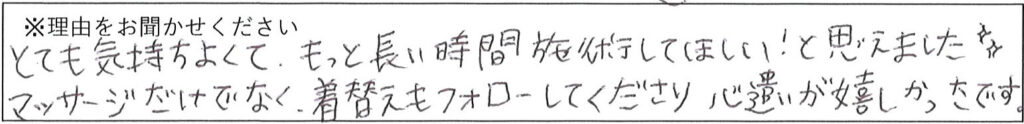 ※理由をお聞かせください
とても気持ちよくて、もっと長い時間施術してほしい!と思えました☆☆
マッサージだけでなく、着替えもフォローしてくださり心遣いが嬉しかったです。